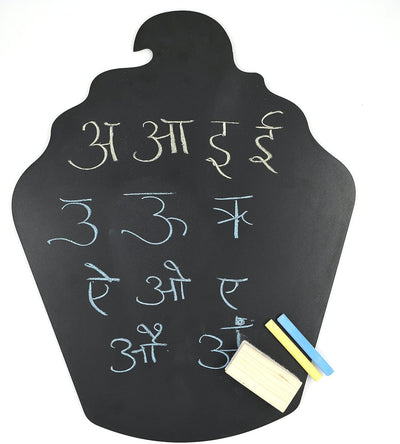 अ आ इ ई
उ ऊ ऋ
ऐ ओ ए
औ अँ